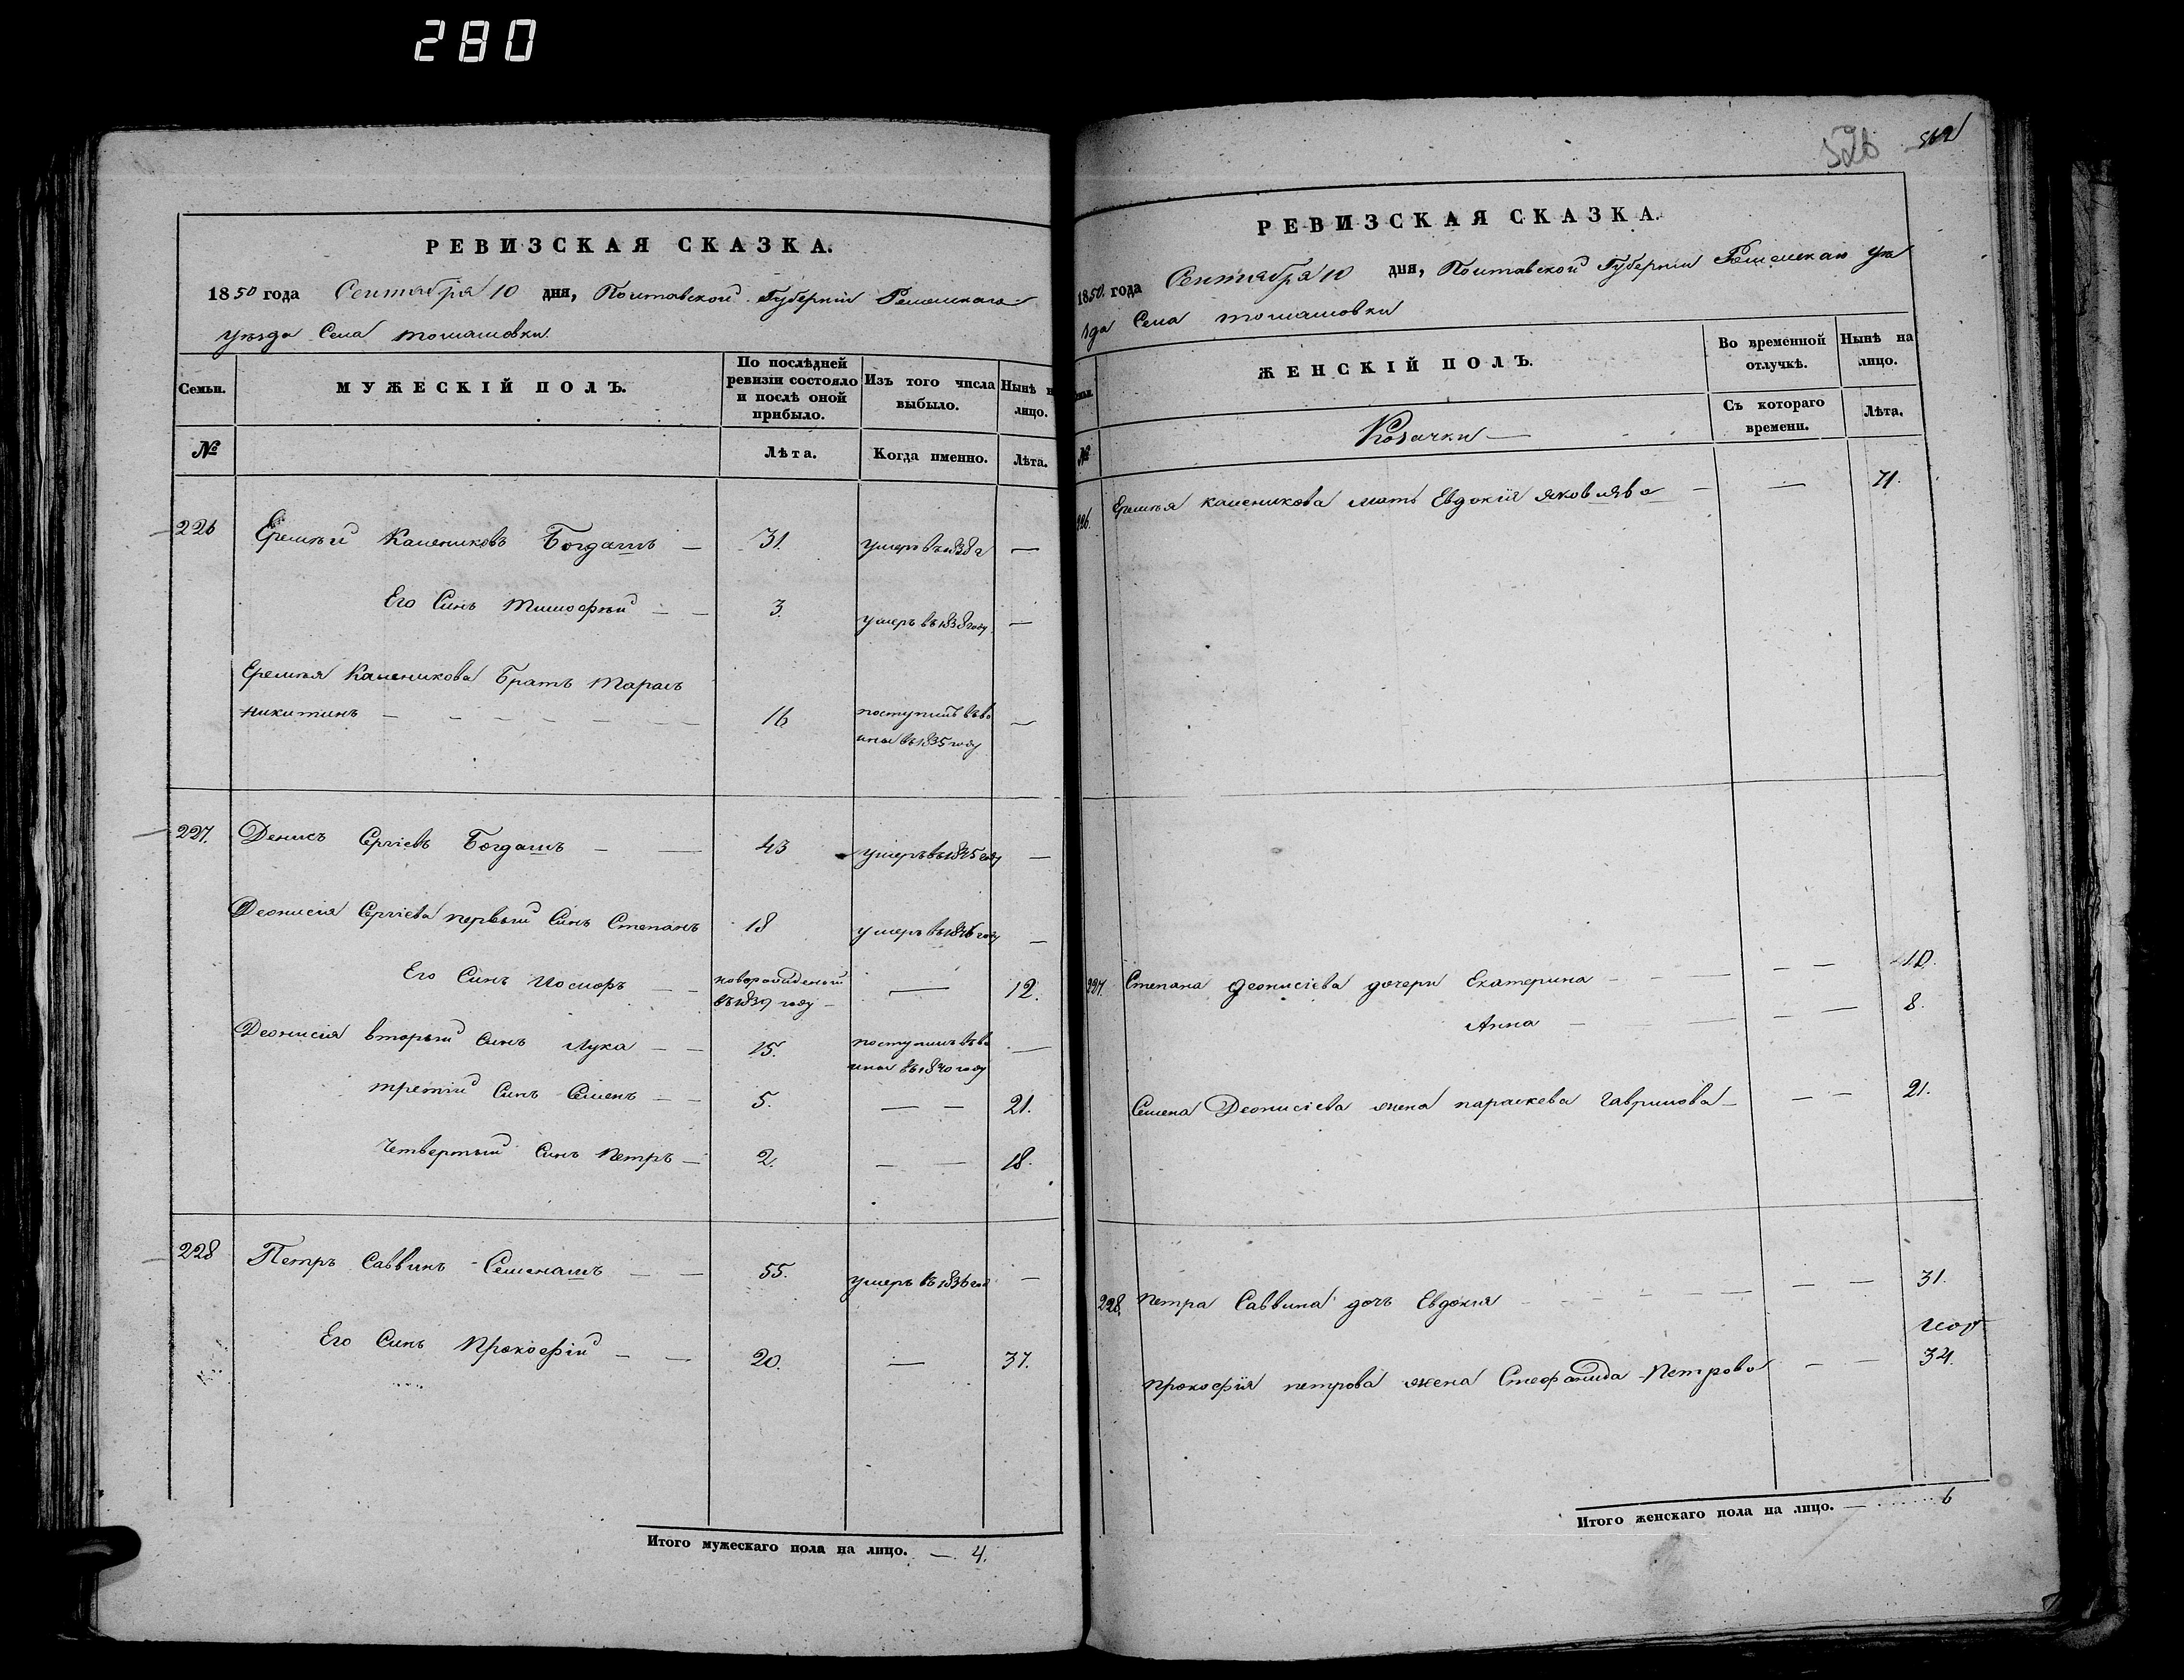 280
РЕВИЗСКАЯ СКАЗКА.
1850 года Сентября 10 дня, Полтавской Губерніи Роменскаго
уѣзда Села Томашовки.
Семьи.
МУЖЕСКІЙ ПОЛЪ.
По послѣдней ревизіи состояло и послѣ оной прибыло.
Изъ того числа выбыло.
Нынѣ н лицо.
№
Лѣта.
Когда именно.
Лѣта.
226 Еремѣй Калениковъ Богдашъ — 31. умеръ въ 1838 г —
Его Синъ Тимофѣй — — 3. умеръ въ 1838 году —
Еремѣя Каленикова Братъ Тарасъ
Никитинъ — — — — — — 16 поступилъ въ во —
ины въ 1835 году
227. Денисъ Сергіевъ Богдашъ — — 43 умеръ въ 1845 году —
Деонисія Сергіева первый Синъ Степанъ 18 умеръ въ 1846 году —
Его Синъ Иосифъ — — новорожденый — 12.
въ 1839 году —
Деонисія вторый Синъ Лука — — 15. поступилъ въ во —
ины въ 1840 году
третій Синъ Семенъ — — 5. — — 21.
Четвертый Синъ Петръ — 2. — — 18.
228 Петръ Саввинъ Семенашъ — — 55. умеръ въ 1836 год —
Его Синъ Прокофій — — 20. — 37.
Итого мужескаго пола на лицо. — 4.
526
РЕВИЗСКАЯ СКАЗКА.
1850. года Сентября 10 дня, Полтавской Губерніи Роменскаго Уѣ
зда Села Томашовки
ЖЕНСКІЙ ПОЛЪ.
Во временной отлучкѣ.
Нынѣ на лицо.
Съ котораго времени.
Лѣта.
№
Козачки —
226. Еремѣя Каленикова мать Евдокія Яковлева — — 71.
227. Степана Деонисіева дочери Екатерина — — — — — 10.
Анна — — — — 8.
Семена Деонисіева жена Параскева Гаврилова — — — 21.
228. Петра Саввина дочь Евдокія — — — — — — — 31.
Прокофія Петрова жена Стефанида Петрова — — 34.
Итого женскаго пола на лицо. — 6